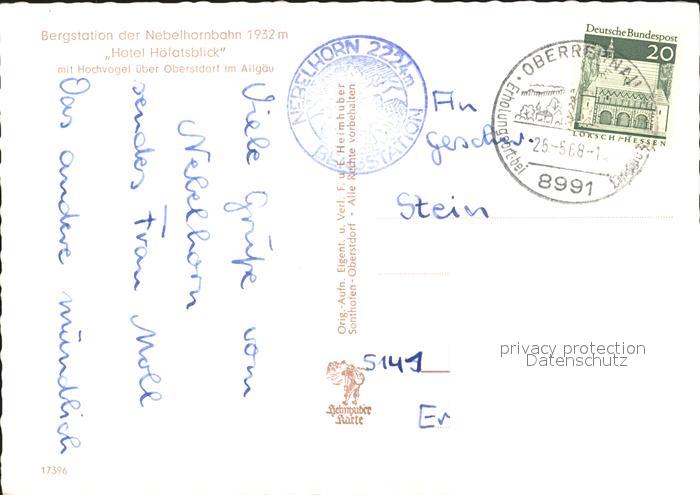 Bergstation der Nebelhornbahn 1932 m
„Hotel Höfatsblick"
mit Hochvogel über Oberstdorf im Allgäu
Viele Grüße vom
Nebelhorn
sendet Frau Moll
Das andere mündlich
NEBELHORN 2224m
BERGSTATION
Orig.-Aufn. Eigent. u. Verl. F. u. E. Heimhuber
Sonthofen-Oberstdorf - Alle Rechte vorbehalten
Heimhuber
Karte
Deutsche Bundespost
20
LORSCH/HESSEN
OBERREITNAU
Erholungsort
26.-5.68-1
8991
An
Geschw.
Stein
5141
Er
privacy protection
Datenschutz
17396